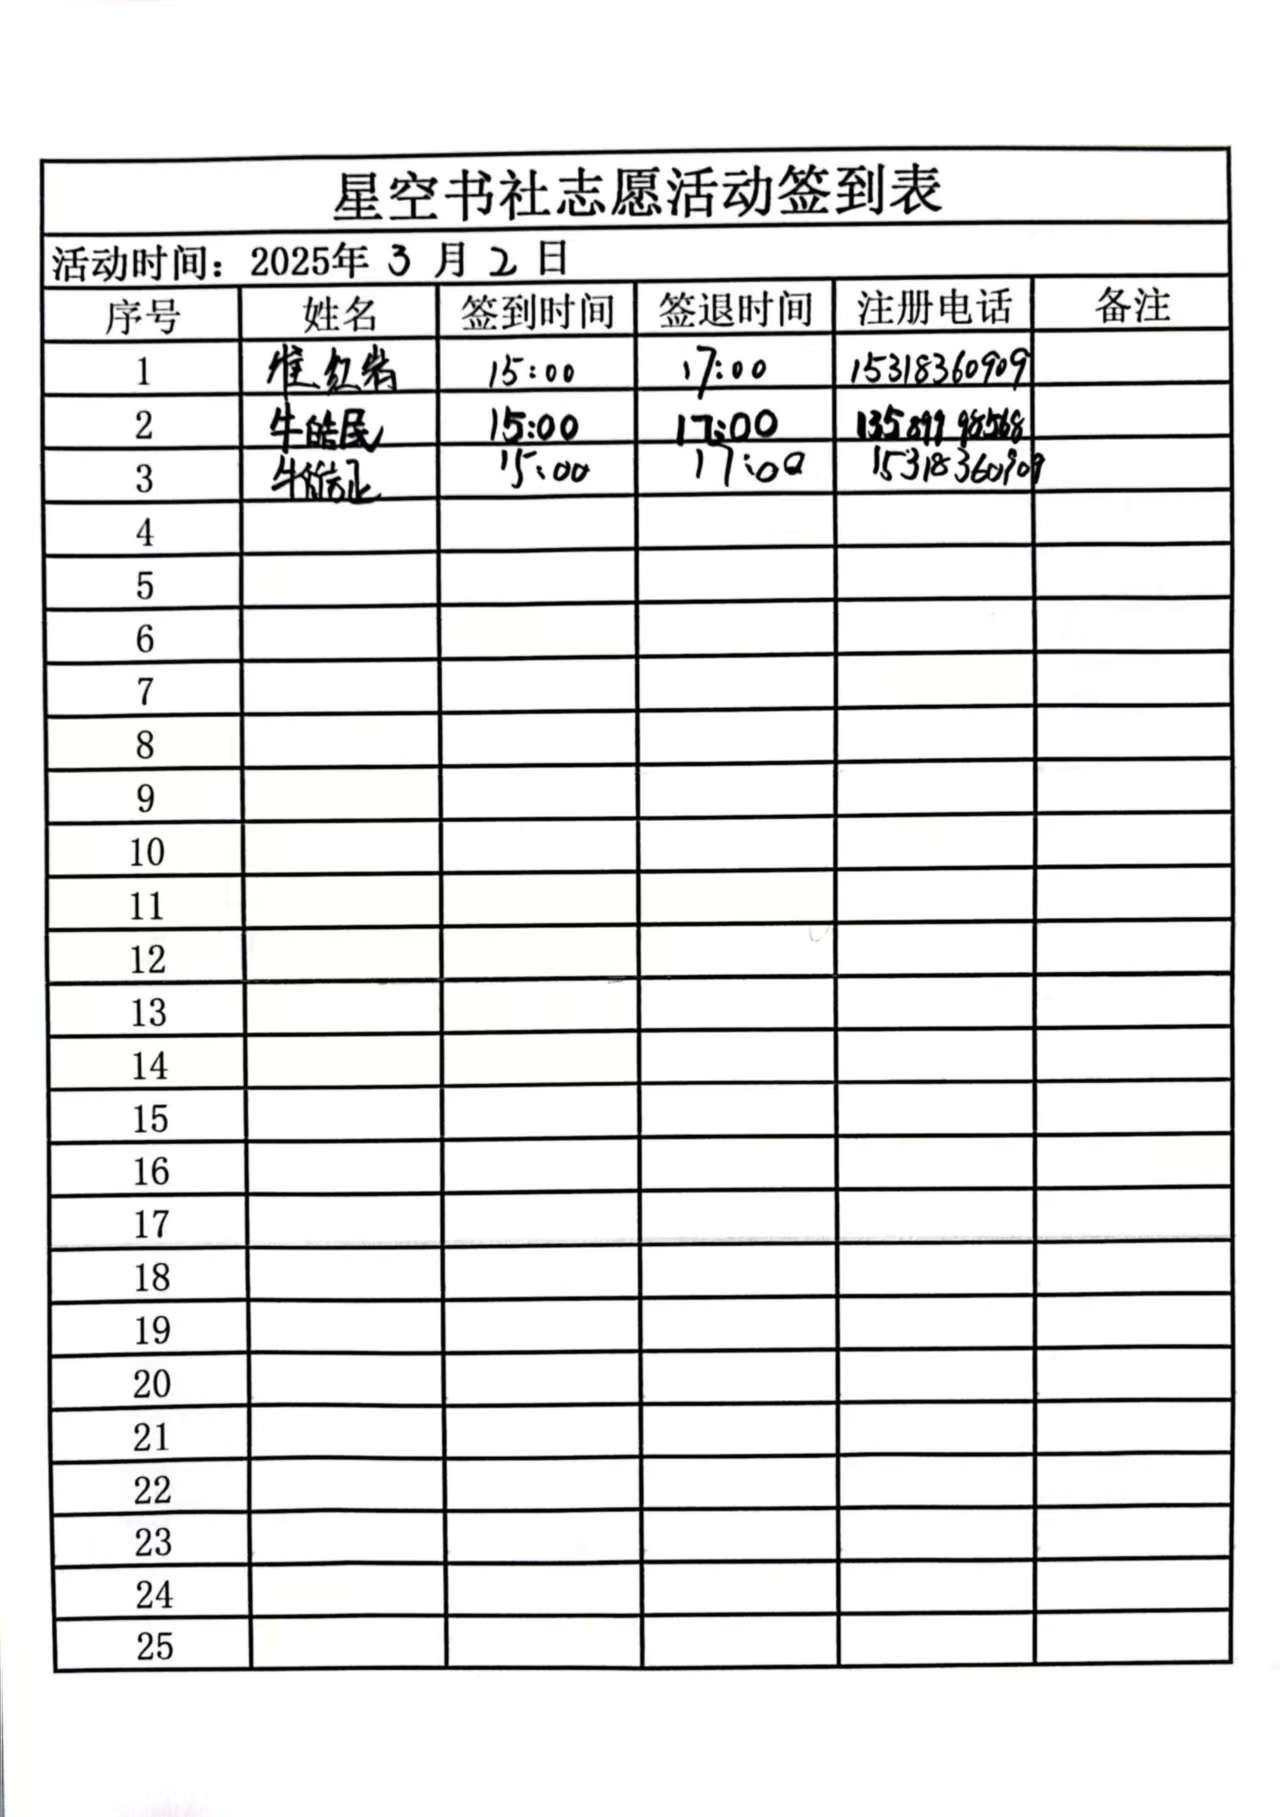 星空书社志愿活动签到表
活动时间：2025年 3 月 2 日
序号 姓名 签到时间 签退时间 注册电话 备注
1 红岩 15:00 17:00 15318360909
2 牛皓民 15:00 17:00 13589998568
3 牛皓正 15:00 17:00 15318360909
4
5
6
7
8
9
10
11
12
13
14
15
16
17
18
19
20
21
22
23
24
25